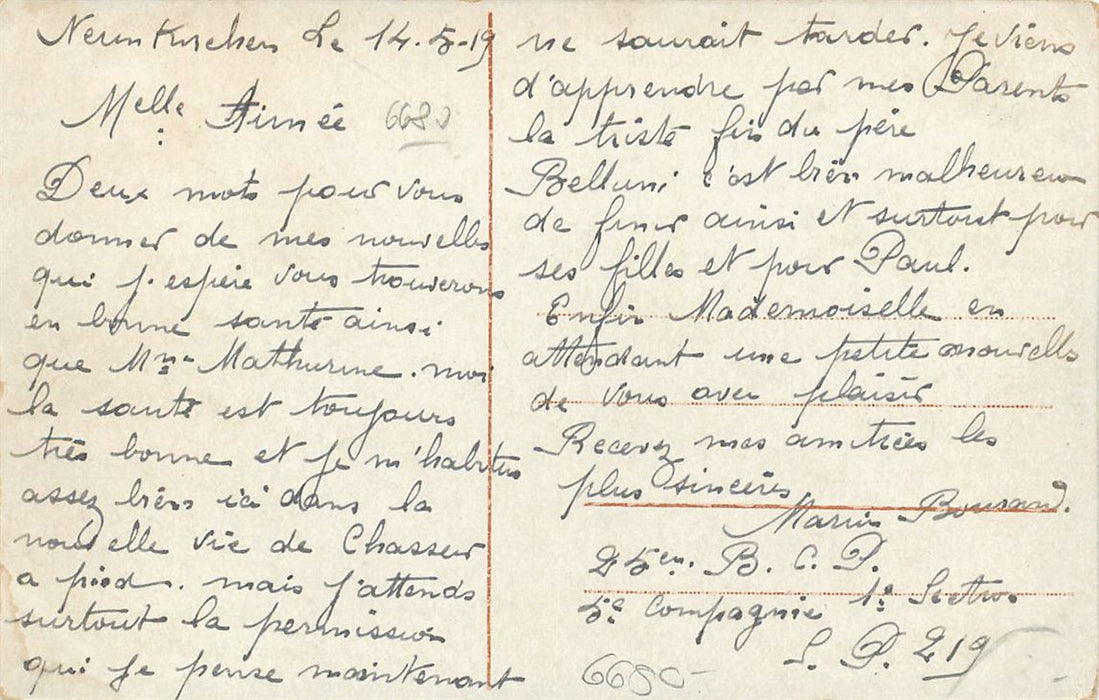 Neunkirchen Le 14-5-19
Melle Aimée 6680
Deux mots pour vous
donner de mes nouvelles
qui j'espère vous trouverons
en bonne santé ainsi
que Mme Mathurine. moi
la santé est toujours
très bonne et je m'habitus
assez bien ici dans la
nouvelle vie de Chasseur
a pied. mais j'attends
surtout la permission
qui je pense maintenant
ne saurait tarder. Je viens
d'apprendre par mes Parents
la triste fin du père
Belluni c'est bien malheureux
de finir ainsi et surtout pour
ses filles et pour Paul.
Enfin Mademoiselle en
attendant une petite nouvelle
de vous avec plaisir
Recevez mes amitiées les
plus sincères
Marin
25em. B. C. P.
5e Compagnie 1e Section
S. P. 219
6680-